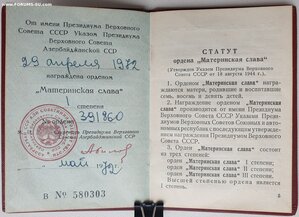 FORUMS-SU.COM
От имени Президиума Верховного
Совета СССР Указом Президиума
Верховного Совета
Азербайджанской ССР
29 апреля 1982
награждена орденом
„Материнская слава“
I
степени
№ ордена 391860
Секретарь Президиума Верховного
Совета Азербайджанской ССР
май
В № 580303
СТАТУТ
ордена „Материнская слава“
(Утвержден Указом Президиума Верховного
Совета СССР от 18 августа 1944 г.)
1. Орденом „Материнская слава“
награждаются матери, родившие и воспитавшие
семь, восемь и девять детей.
2. Награждение орденом „Материнская слава“
производится от имени Президиума
Верховного Совета СССР Указами Президиумов
Верховных Советов Союзных и автономных
республик с последующим утверждением
награждения Президиумом Верховного
Совета СССР.
3. Орден „Материнская слава“ состоит
из трех степеней:
орден „Материнская слава“ I степени;
орден „Материнская слава“ II степени;
орден „Материнская слава“ III степени.
Высшей степенью ордена является
I степень.